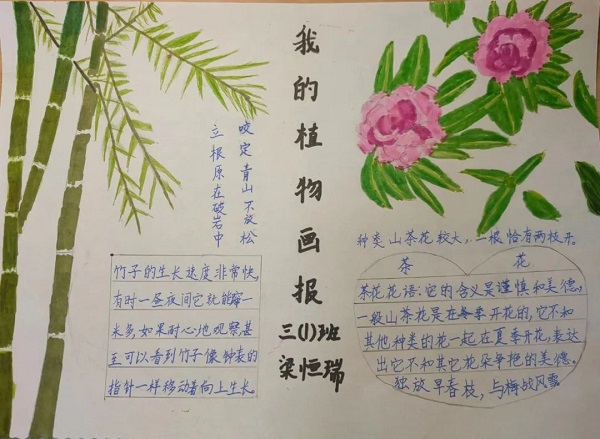 我的植物画报
三(1)班
梁恒瑞
咬定青山不放松
立根原在破岩中
竹子的生长速度非常快,
有时一昼夜间它就能窜一
米多,如果耐心地观察,甚
至可以看到竹子像钟表的
指针一样移动着向上生长。
种类山茶花较大,一根恰有两枝开。
茶花
茶花花语:它的含义是谨慎和美德。
一般山茶花是在冬季开花的,它不和
其他种类的花一起在夏季开花,表达
出它不和其它花朵争艳的美德。
独放早春枝,与梅战风雪